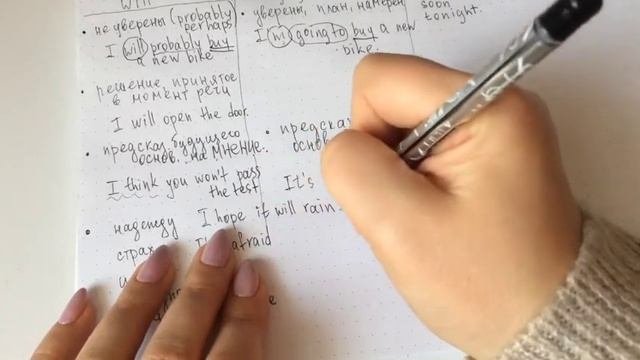 Will
не уверены (probably
perhaps
I will probably buy
a new bike
решение, принятое
в момент речи
I will open the door.
предсказ. будущего
основ. на мнение..
I think you won't pass
the test
надежду I hope it will rain.
страх afraid
уверены, план, намерен
I 'm going to buy a new
bike.
предска
основ
It's
soon
tonight.